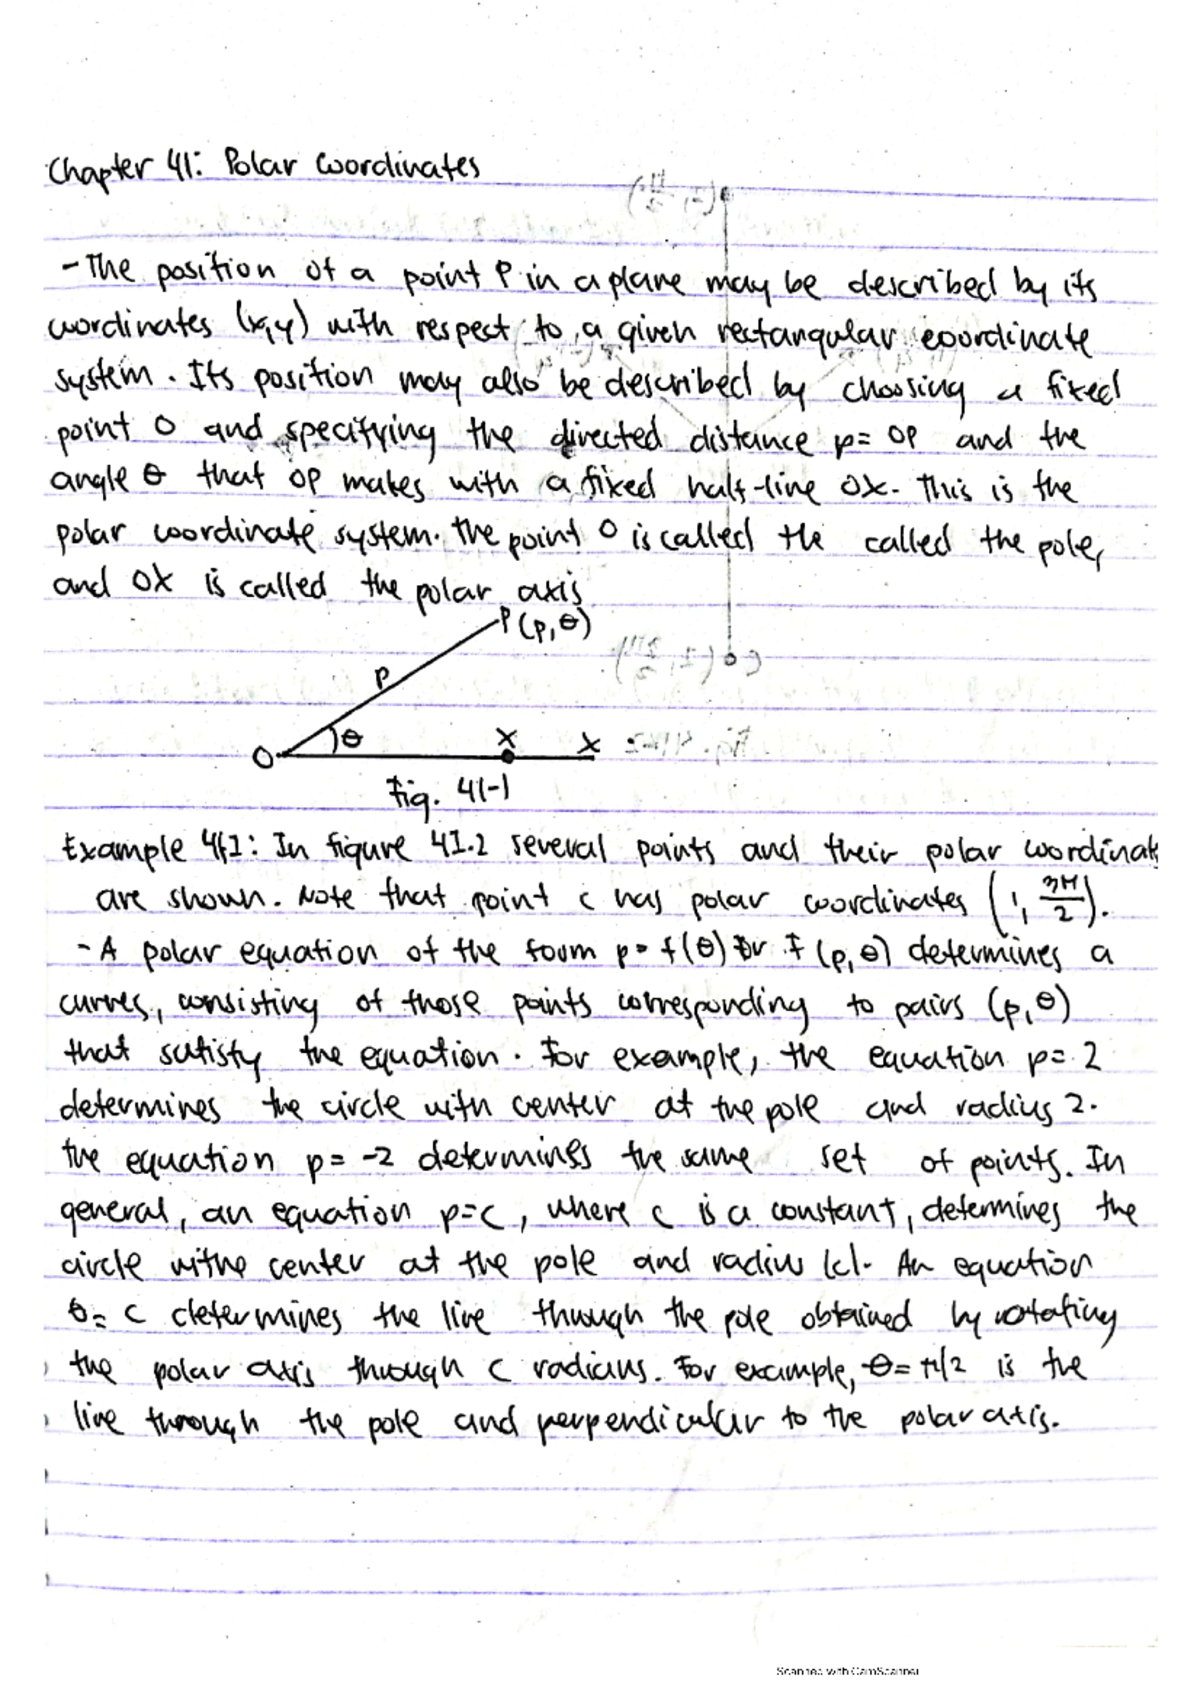 Chapter 41: Polar Coordinates
- The position of a point P in a plane may be described by its
coordinates (x,y) with respect to a given rectangular coordinate
system. Its position may also be described by choosing a fixed
point O and specifying the directed distance p= OP and the
angle θ that OP makes with a fixed half-line OX. This is the
polar coordinate system. The point O is called the called the pole,
and OX is called the polar axis
P (p,θ)
p
θ
X
X
O
Fig. 41-1
Example 41.1: In figure 41.2 several points and their polar coordinat
are shown. Note that point C has polar coordinates (1, 3π/2).
- A polar equation of the form p= f(θ) or F (p,θ) determines a
curves, consisting of those points corresponding to pairs (p,θ)
that satisfy the equation. For example, the equation p= 2
determines the circle with center at the pole and radius 2.
The equation p= -2 determines the same set of points. In
general, an equation p=c, where c is a constant, determines the
circle withe center at the pole and radius |c|. An equation
θ= c determines the line through the pole obtained by rotating
the polar axis through c radians. For example, θ= π/2 is the
line through the pole and perpendicular to the polar axis.
Scanned with CamScanner